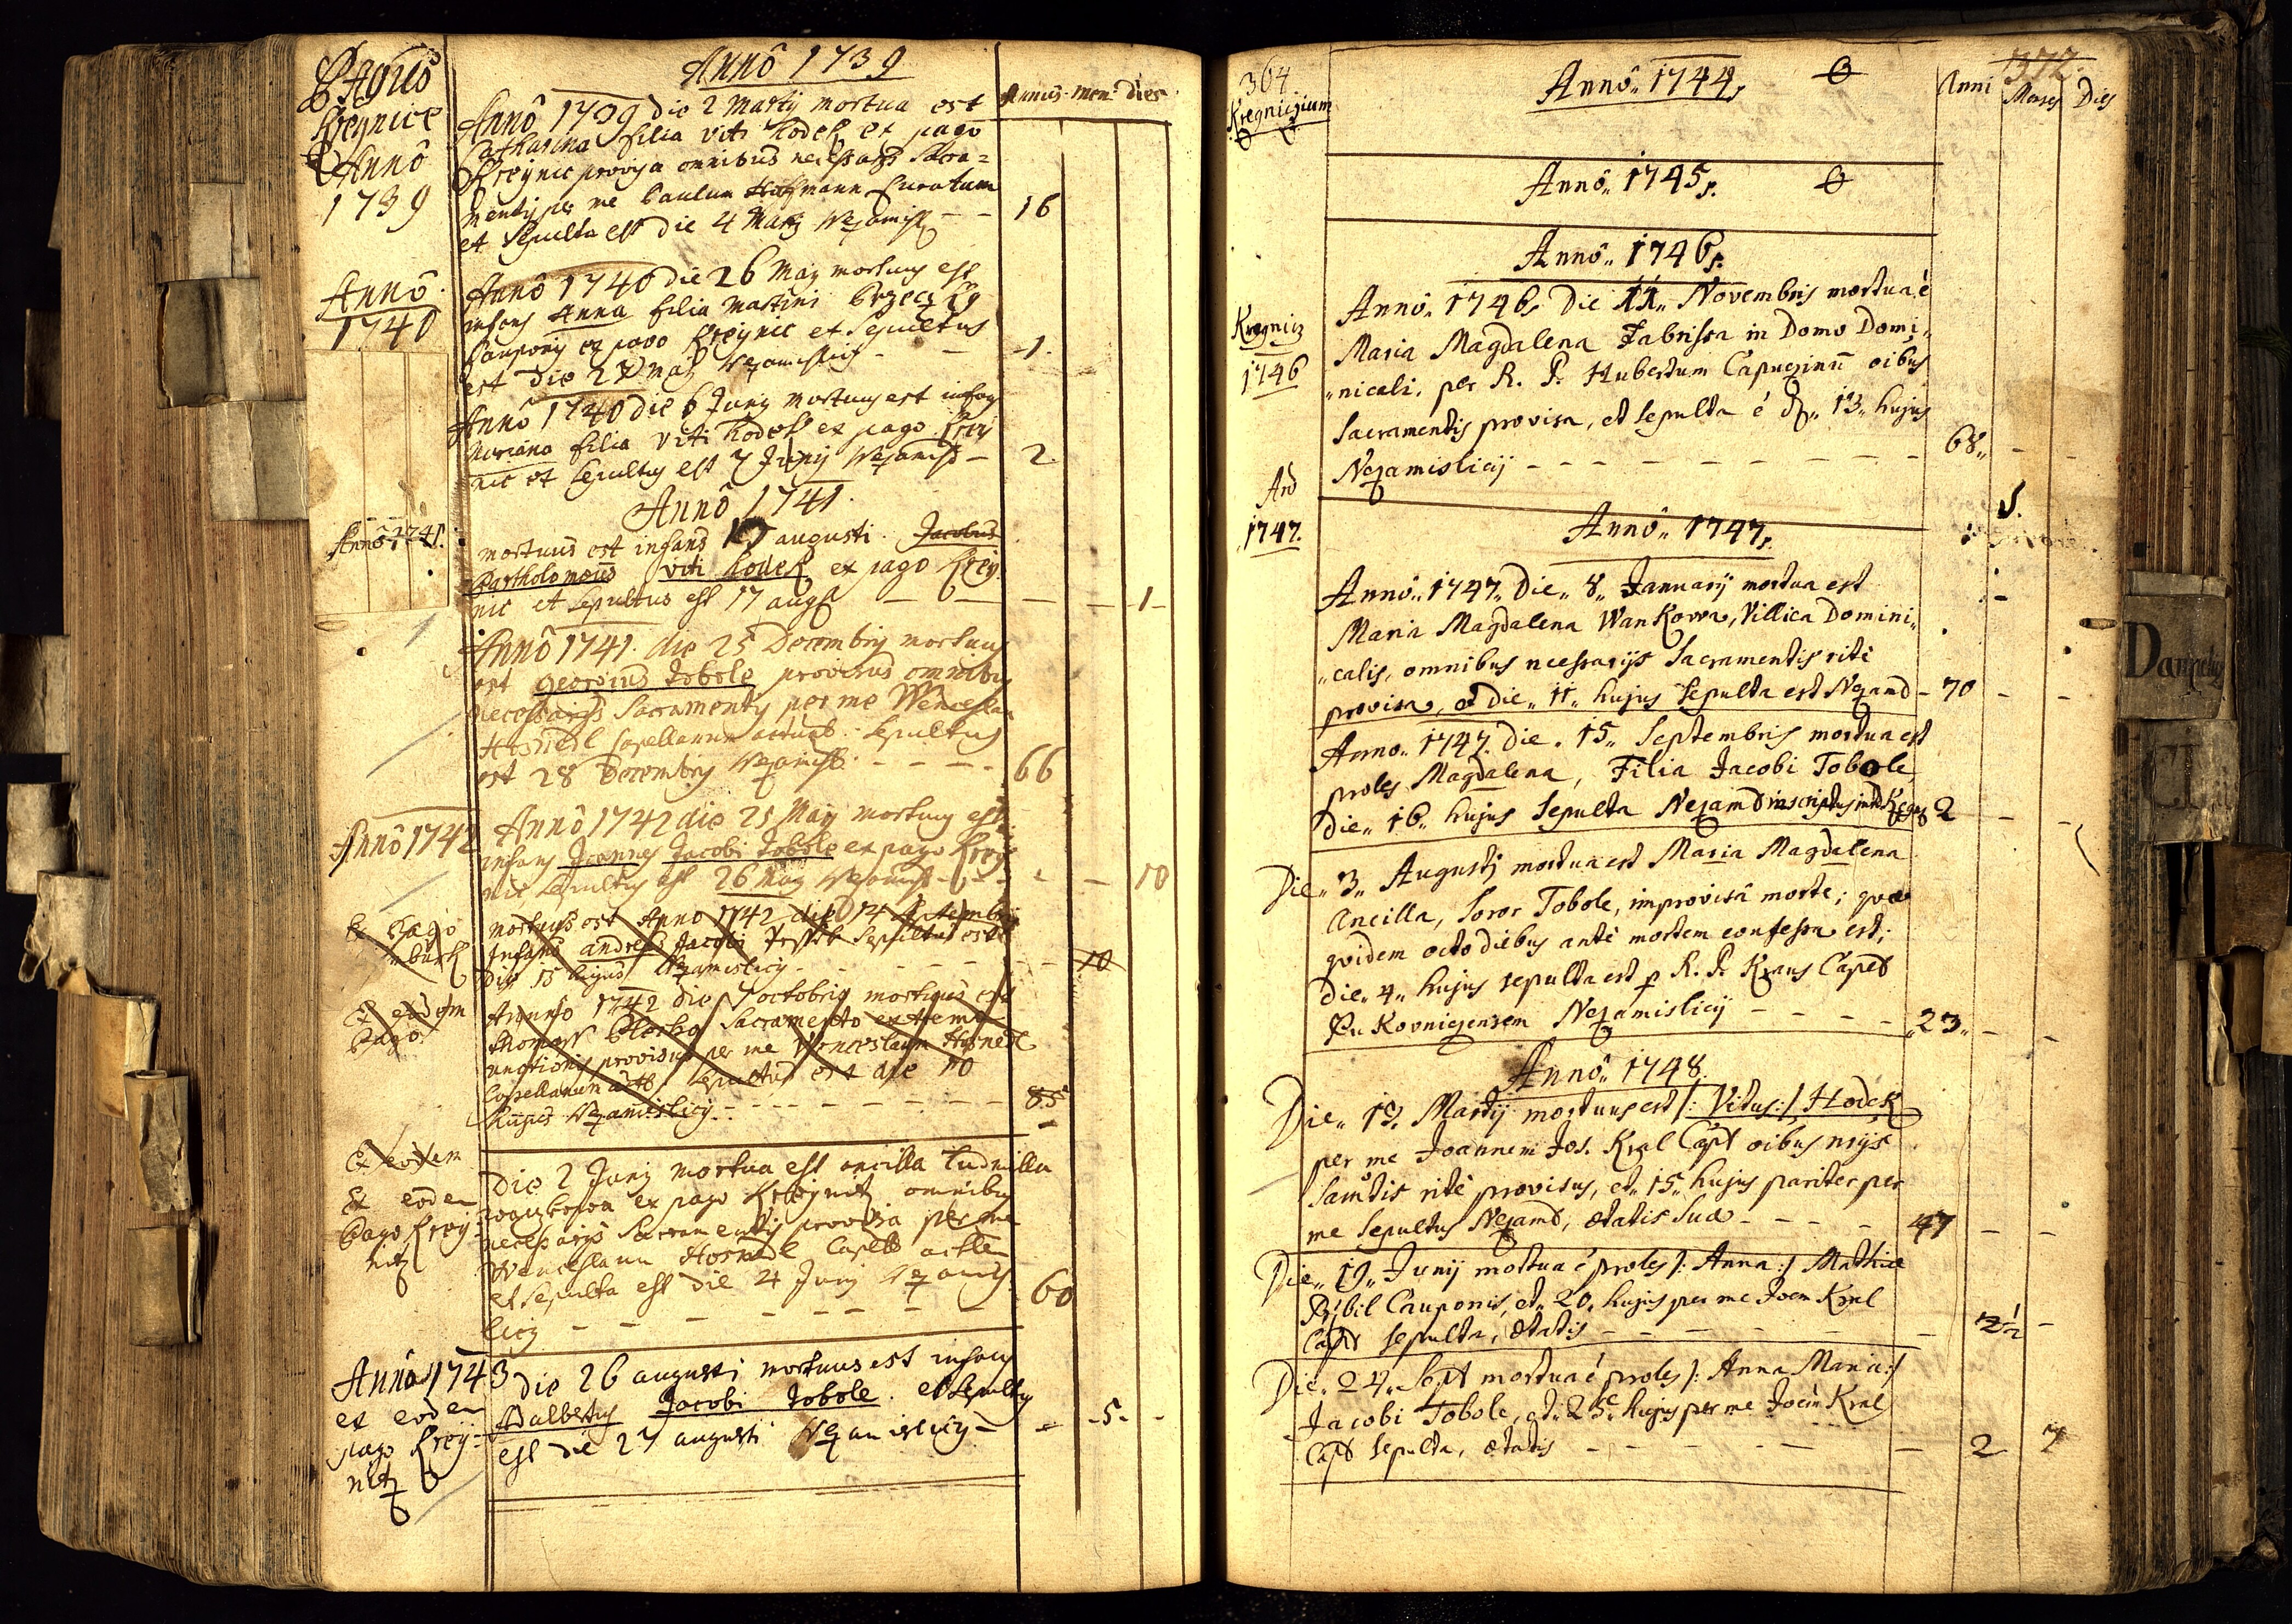 Pagus
Kregnice
Anno
1739
Annô 1739
Annus men. Dies
Annô 1739 die 2 Martij mortua est
Catharina filia Viti Hodek ex pago
Kreynic provisa omnibus necessarijs Sacra=
mentis per me Paulum Hofmann Curatum
et sepulta est die 4 Martij Nezamisl – – 16
Annô
1740
Annô 1740 die 26 Maij mortuus est
infans Anna filia Martini
Cauponis ex pago Kreynic et sepultus
est die 27 Maij Nezamislicij – – 1.
Annô 1740 die 6 Junij mortuus est infans
Mariana filia Viti Hodek ex pago Kreij
nic et sepultus est 7 Junij Nezamisl – 2.
Annô 1741.
Annô 1741.
mortuus est infans augusti Jacobus
Bartholomeus Viti Hodek ex pago Kreij
nic et sepultus est 17 aug – – – – 1 –
Annô 1741. die 25 Decembris mortuus
est georgius Tobole provisus omnibus
necessarijs Sacramentis per me Wenceslau
Hosnedl Capellanum actual. Sepultus
est 28 Decembris Nezamisl. – – – – 66
Annô 1742
Annô 1742 die 25 Maij mortuus est
infans Joannes Jacobi Tobole ex pago Kreij
nic sepultus est 26 Maij Nezamisl – – – – 10
Ex Pago
mortuus est Anno 1742 die 14 Septembris
Infans andreas Jacobi sepultus est
Die 15 hujus Nezamislicij – – – – – – 10
Ex eodem
Pago
Anno 1742 die 7 octobris mortuus est
Thomas Sacramento extremæ
unctionis provisus per me Wenceslaum Hosnedl
Capellanum act. Sepultus est die 10
hujus Nezamislicij – – – – – – – – 85
Ex eodem
Ex eoden
Pago Kreij=
nitz
Die 2 Junij mortua est ancilla Ludmilla
ex pago Kreijnitz omnibus
necessarijs Sacramentis provisa per me
Wenceslaum Hosnedl Capell actle
et sepulta est die 4 Junij Nezamis
licij – – – – – – – 60
Annô 1743
ex eoden
pago Kreij=
nitz
Die 26 augusti mortuus est infans
Adalbertus Jacobi Tobole. et sepultus
est die 27 augusti Nezamislicij – – – 5. –
364
Kregniczium
Annô 1744.
Anni Menses Dies
372.
Annô 1745.
Annô 1746.
Kregnicz
1746
Annô 1746. Die 11. Novembris mortua é
Maria Magdalena Fabrissa in Domo Domi„
„nicali, per R. P. Hubertum Capuczinū oibus
Sacramentis provisa, et sepulta é d. 13. hujus
Nezamislicij – – – – – – – – – 68„ – –
And
1747.
Annô 1747.
Annô 1747. Die „8„ Januarij mortua est
Maria Magdalena Wankowa, Villica Domini„
„calis, omnibus necssarijs Sacramentis ritè
provisa, et die „11„ hujus sepulta est Nezamd – 70 – –
Anno 1747. Die 15„ Septembris mortua est
proles Magdalena, Filia Jacobi Tobole
die „16„ hujus sepulta Nezamd 2 – –
Die „3„ Augustj mortua est Maria Magdalena
Ancilla, Soror Tobole, improvisâ morte; quæ
quidem octo diebus antè mortem confessa est;
Die „4„ hujus sepulta est p R. P. Kraus Capell
Nezamislicij – – – – „23„ – –
Annô 1748.
Die „13. Martij mortuus est /: Vitus :/ Hodek
per me Joannem Jos. Kral Capl oibus nrijs
Samtis ritè provisus, et „15„ hujus pariter per
me sepultus Nezamd, ætatis suæ – – – – 47 – –
Die „19„ Junij mortua é proles /: Anna :/ Mathiæ
Přibil Cauponis, et „20„ hujus per me Joem Kral
Capl sepulta, ætatis – – – – – – – 2½ –
Die „24„ Sept mortua é proles /: Anna Maria :/
Jacobi Tobole, et „25„ hujus per me Joem Kral
Capl sepulta, ætatis – – – – – – 2 7